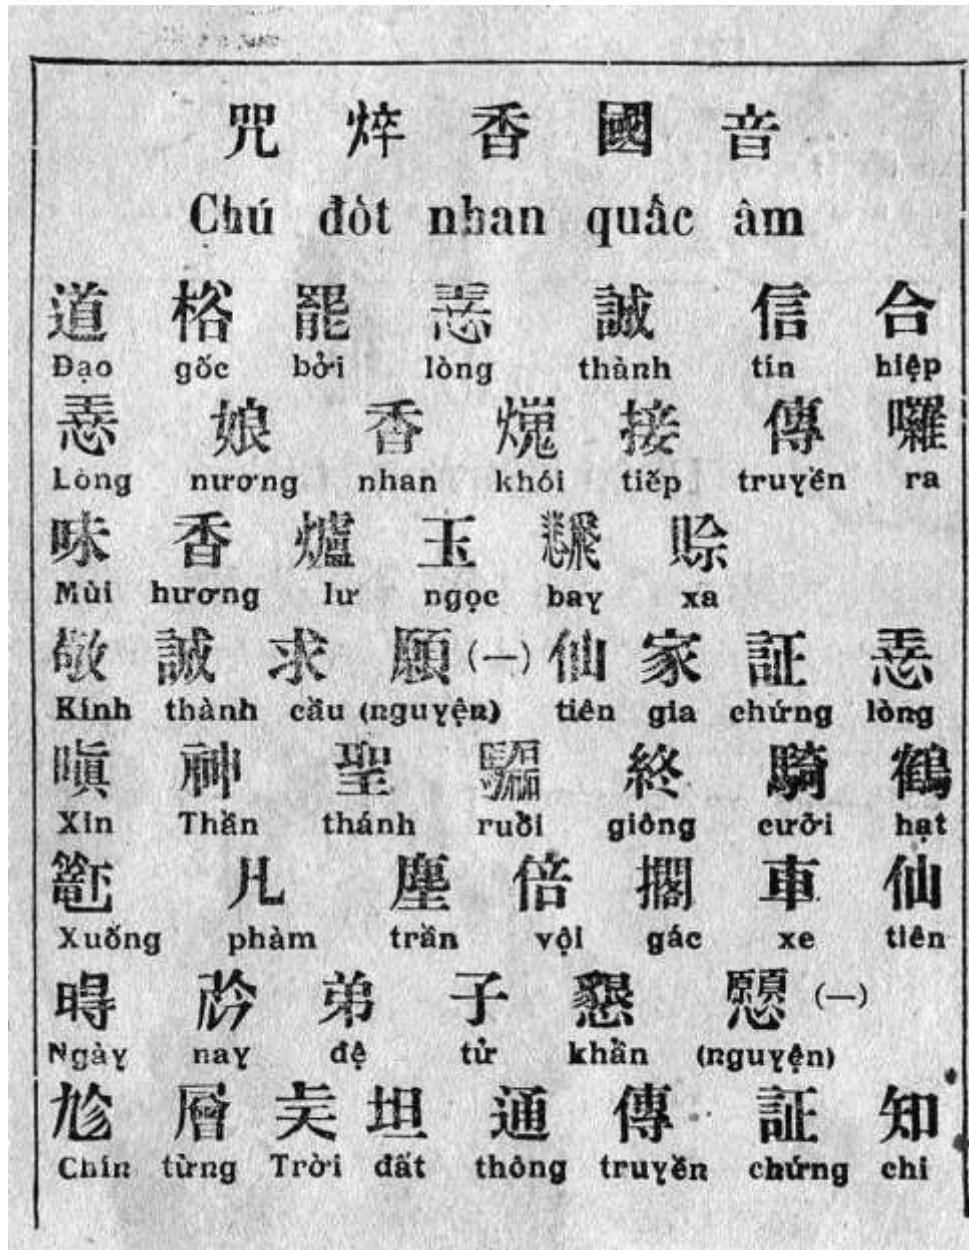 咒焠香國音
Chú đốt nhan quấc âm
道格罷𢚸誠信合
Đạo gốc bởi lòng thành tín hiệp
𢚸娘香熴接傳囉
Lòng nương nhan khói tiếp truyền ra
味香爐玉𩙻賒
Mùi hương lư ngọc bay xa
敬誠求願(一)仙家証𢚸
Kính thành cầu (nguyện) tiên gia chứng lòng
嗔神聖終騎鶴
Xin Thần thánh ruổi giông cưởi hạt
凡塵倍擱車仙
Xuống phàm trần vội gác xe tiên
弟子懇愿(一)
Ngày nay đệ tử khẩn (nguyện)
層坦通傳証知
Chín từng Trời đất thông truyền chứng chi